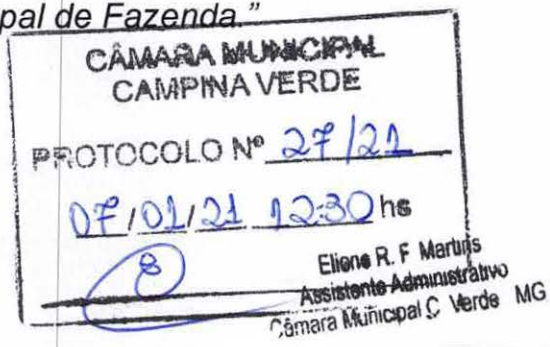 pal de Fazenda."
CÂMARA MUNICIPAL
CAMPINA VERDE
PROTOCOLO Nº 27/21
07/01/21 12:30 hs
Eliene R. F. Martins
Assistente Administrativo
Câmara Municipal C. Verde MG